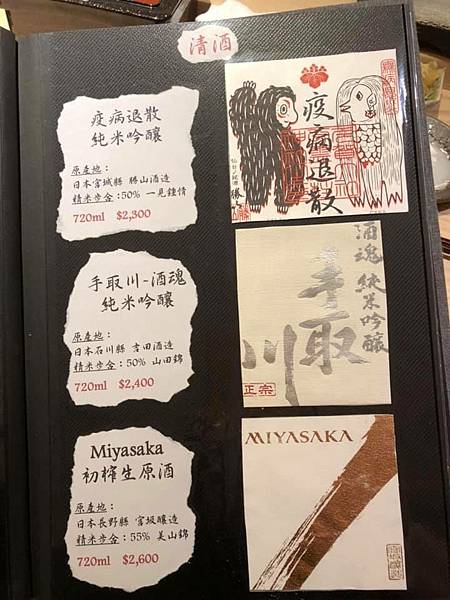 清酒
疫病退散
純米吟釀
原產地：
日本宮城縣 勝山酒造
精米步合：50% 一見鍾情
720ml $2,300
疫病退散
手取川-酒魂
純米吟釀
原產地：
日本石川縣 吉田酒造
精米步合：50% 山田錦
720ml $2,400
酒魂 純米吟醸
手取川
正宗
Miyasaka
初榨生原酒
原產地：
日本長野縣 宮坂釀造
精米步合：55% 美山錦
720ml $2,600
MIYASAKA